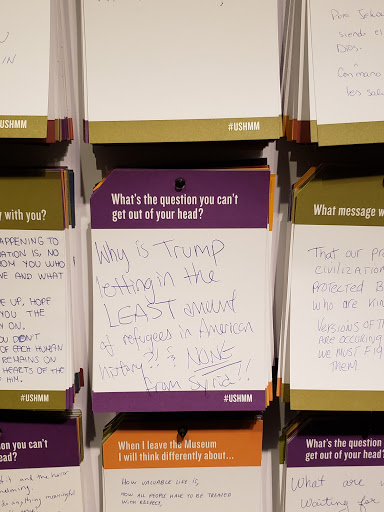 IN
#USHMM
#USHMM
Dios.
#USHMM
y with you?
APPENING TO
ATION IS, NO
OM YOU WHO
VE AND WHAT
E UP, HOPE
YOU THE
Y ON.
OU DON'T
OF EACH HUMAN
REMAINS ON
HEARTS OF THE
F HIM.
#USHMM
What's the question you can't
get out of your head?
Why is Trump
letting in the
LEAST amount
of refugees in American
history?!? & NONE
from Syria?!!
#USHMM
What message w
That our pr
civilization
protected B
who are kin
VERSIONS OF TH
ARE OCCURING
WE MUST FIG
THEM.
on you can't
ead?
t and the horror
do anything meaningful
When I leave the Museum
I will think differently about...
HOW VALUABLE LIFE IS,
HOW ALL PEOPLE HAVE TO BE TREATED
WITH RESPECT,
What's the questi
get out of your h
What are w
Waiting for